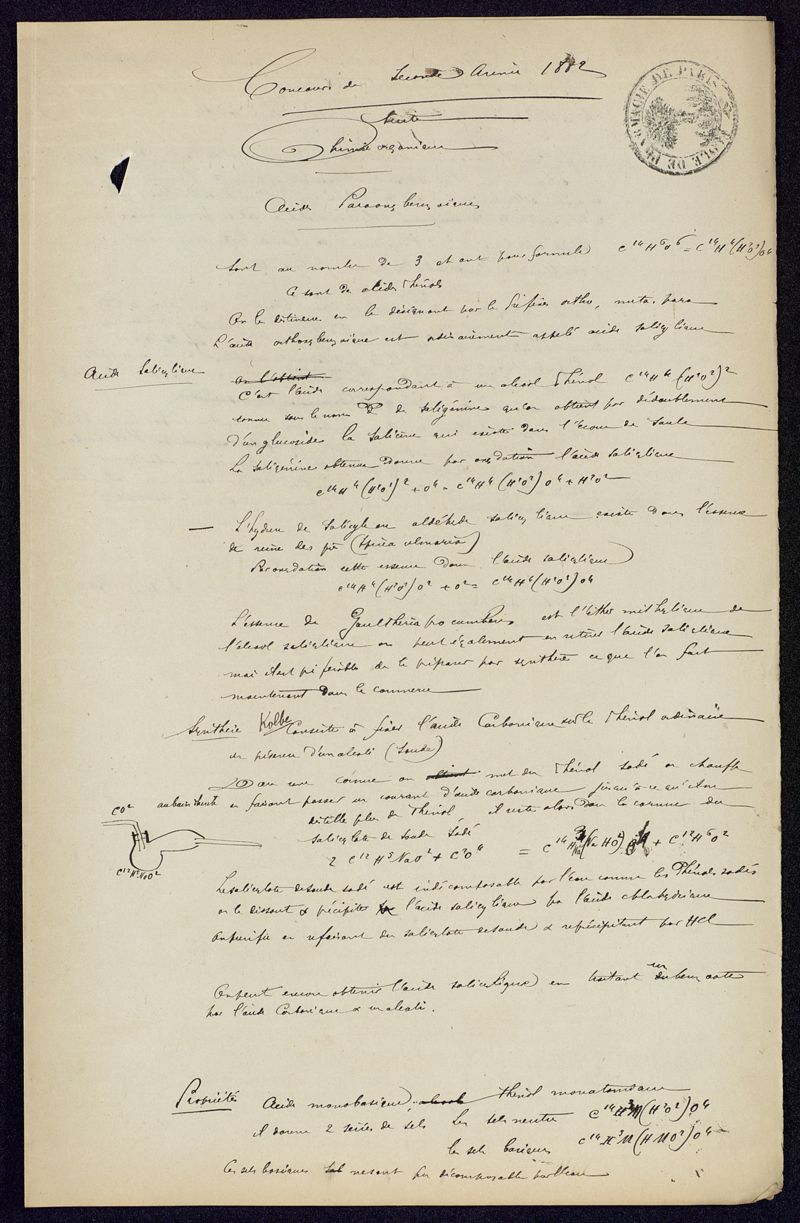 Concours de Seconde Année 1882
Suite
Chimie organique
Acides Paraoxybenzoiques
Sont au nombre de 3 et ont pour formule C¹⁴H⁶O⁶ = C¹⁴H⁴(H²O²)O⁴
Ce sont des acides Phénols
On les distingue en les désignant par le préfixe ortho, meta, para
L'acide orthoxybenzoique est ordinairement appelé acide salicylique
Acide Salicylique
On l'obtient
C'est l'acide correspondant à un alcool Phénol C¹⁴H⁴(H²O²)²
connu sous le nom de saligénine qu'on obtient par dédoublement
d'un glucoside la salicine qui existe dans l'écorce de saule
La saligénine obtenue donne par oxydation l'acide salicylique
C¹⁴H⁴(H²O²)² + O⁴ = C¹⁴H⁴(H²O²)O⁴ + H²O²
— L'hydrure de Salicyle ou aldéhyde salicylique existe dans l'essence
de reine des prés (Spirea ulmaria)
Par oxydation cette essence donne l'acide salicylique
C¹⁴H⁴(H²O²)O² + O² = C¹⁴H⁴(H²O²)O⁴
L'essence de Gaultheria procumbens est l'éther méthylique de
l'alcool salicylique on peut également en retirer l'acide salicylique
mais il est préférable de le préparer par synthèse ce que l'on fait
maintenant dans le commerce
Synthèse Kolbe Consiste à fixer l'acide Carbonique sur le Phénol ordinaire
en présence d'un alcali (soude)
Dans une cornue on met du Phénol sodé on chauffe
au bain d'huile en faisant passer un courant d'acide carbonique jusqu'à ce qu'il ne
distille plus de Phénol, il reste alors dans la cornue du
salicylate de soude sodé
CO²
C¹²H⁵NaO²
2 C¹²H⁵NaO² + C²O⁴ = C¹⁴H³Na(NaHO²)O⁴ + C¹²H⁶O²
Le salicylate de soude sodé est indécomposable par l'eau comme les Phénols sodés
on le dissout & précipite l'acide salicylique par l'acide chlorhydrique
On purifie en refaisant du salicylate de soude & reprécipitant par HCl
On peut encore obtenir l'acide salicylique en traitant un
par l'acide Carbonique & un alcali.
Propriétés Acide monobasique, Phénol monoatomique
il donne 2 séries de sels les sels neutres C¹⁴H³M(H²O²)O⁴
les sels basiques C¹⁴H³M(HMO²)O⁴
Ces sels basiques ne sont pas décomposable par l'eau
ECOLE DE PHARMACIE DE PARIS